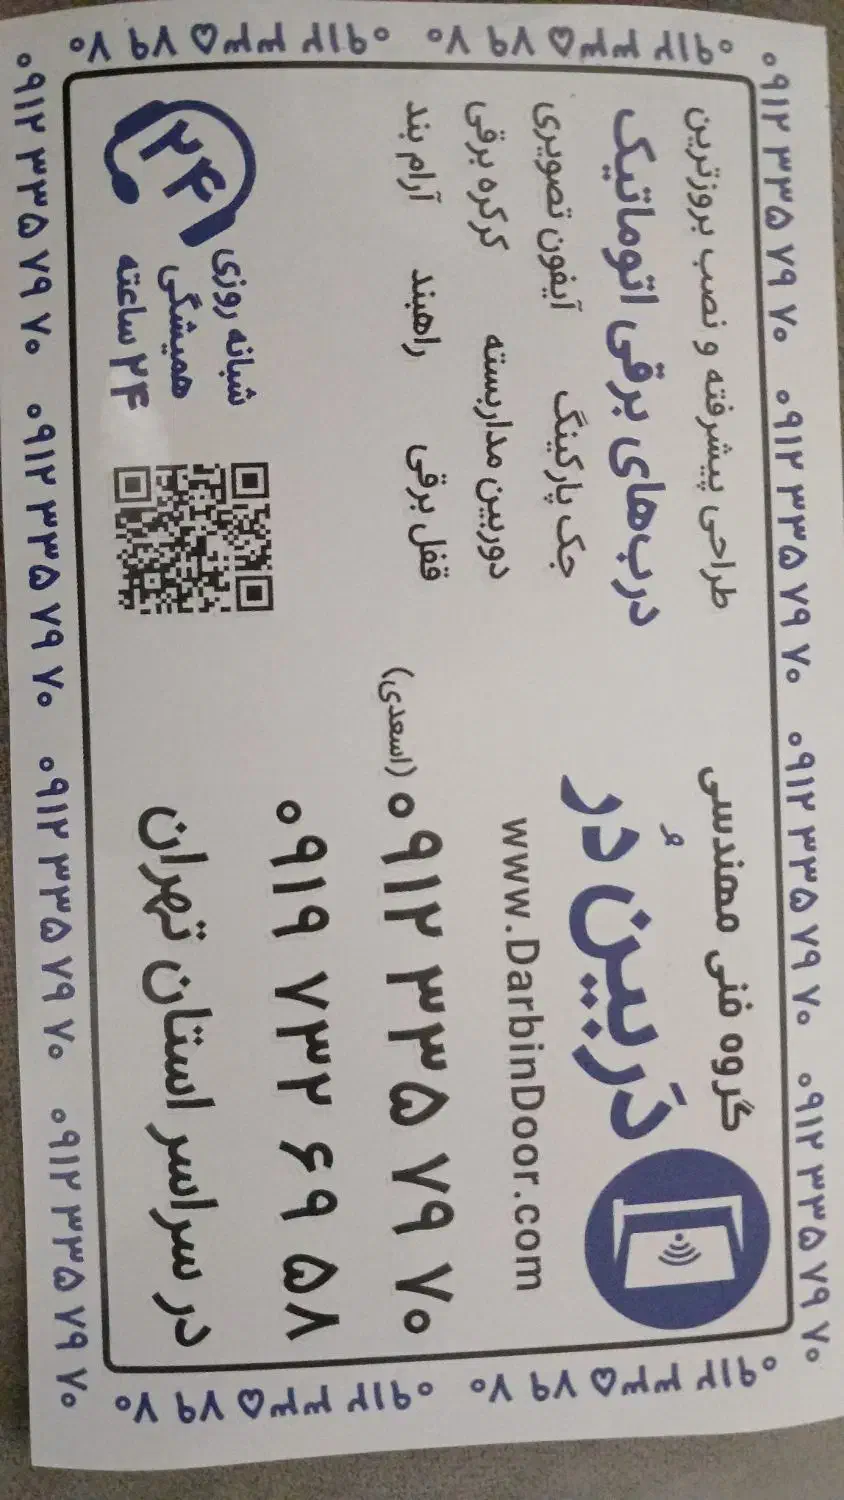 گروه فنی مهندسی
دَربین دُر
www.DarbinDoor.com
۰۹۱۲ ۳۳۵ ۷۹ ۷۰ (اسعدی)
۰۹۱۹ ۷۳۲ ۶۹ ۵۸
در سراسر استان تهران
طراحی پیشرفته و نصب بروزترین
درب‌های برقی اتوماتیک
جک پارکینگ آیفون تصویری
دوربین مداربسته کرکره برقی
قفل برقی راهبند آرام بند
۲۴
شبانه روزی
همیشگی
۲۴ ساعته
۰۹۱۲ ۳۳۵ ۷۹ ۷۰ ۰۹۱۲ ۳۳۵ ۷۹ ۷۰ ۰۹۱۲ ۳۳۵ ۷۹ ۷۰ ۰۹۱۲ ۳۳۵ ۷۹ ۷۰
۰۹۱۲ ۳۳۵ ۷۹ ۷۰ ۰۹۱۲ ۳۳۵ ۷۹ ۷۰
۰۹۱۲ ۳۳۵ ۷۹ ۷۰ ۰۹۱۲ ۳۳۵ ۷۹ ۷۰ ۰۹۱۲ ۳۳۵ ۷۹ ۷۰ ۰۹۱۲ ۳۳۵ ۷۹ ۷۰
۰۹۱۲ ۳۳۵ ۷۹ ۷۰ ۰۹۱۲ ۳۳۵ ۷۹ ۷۰